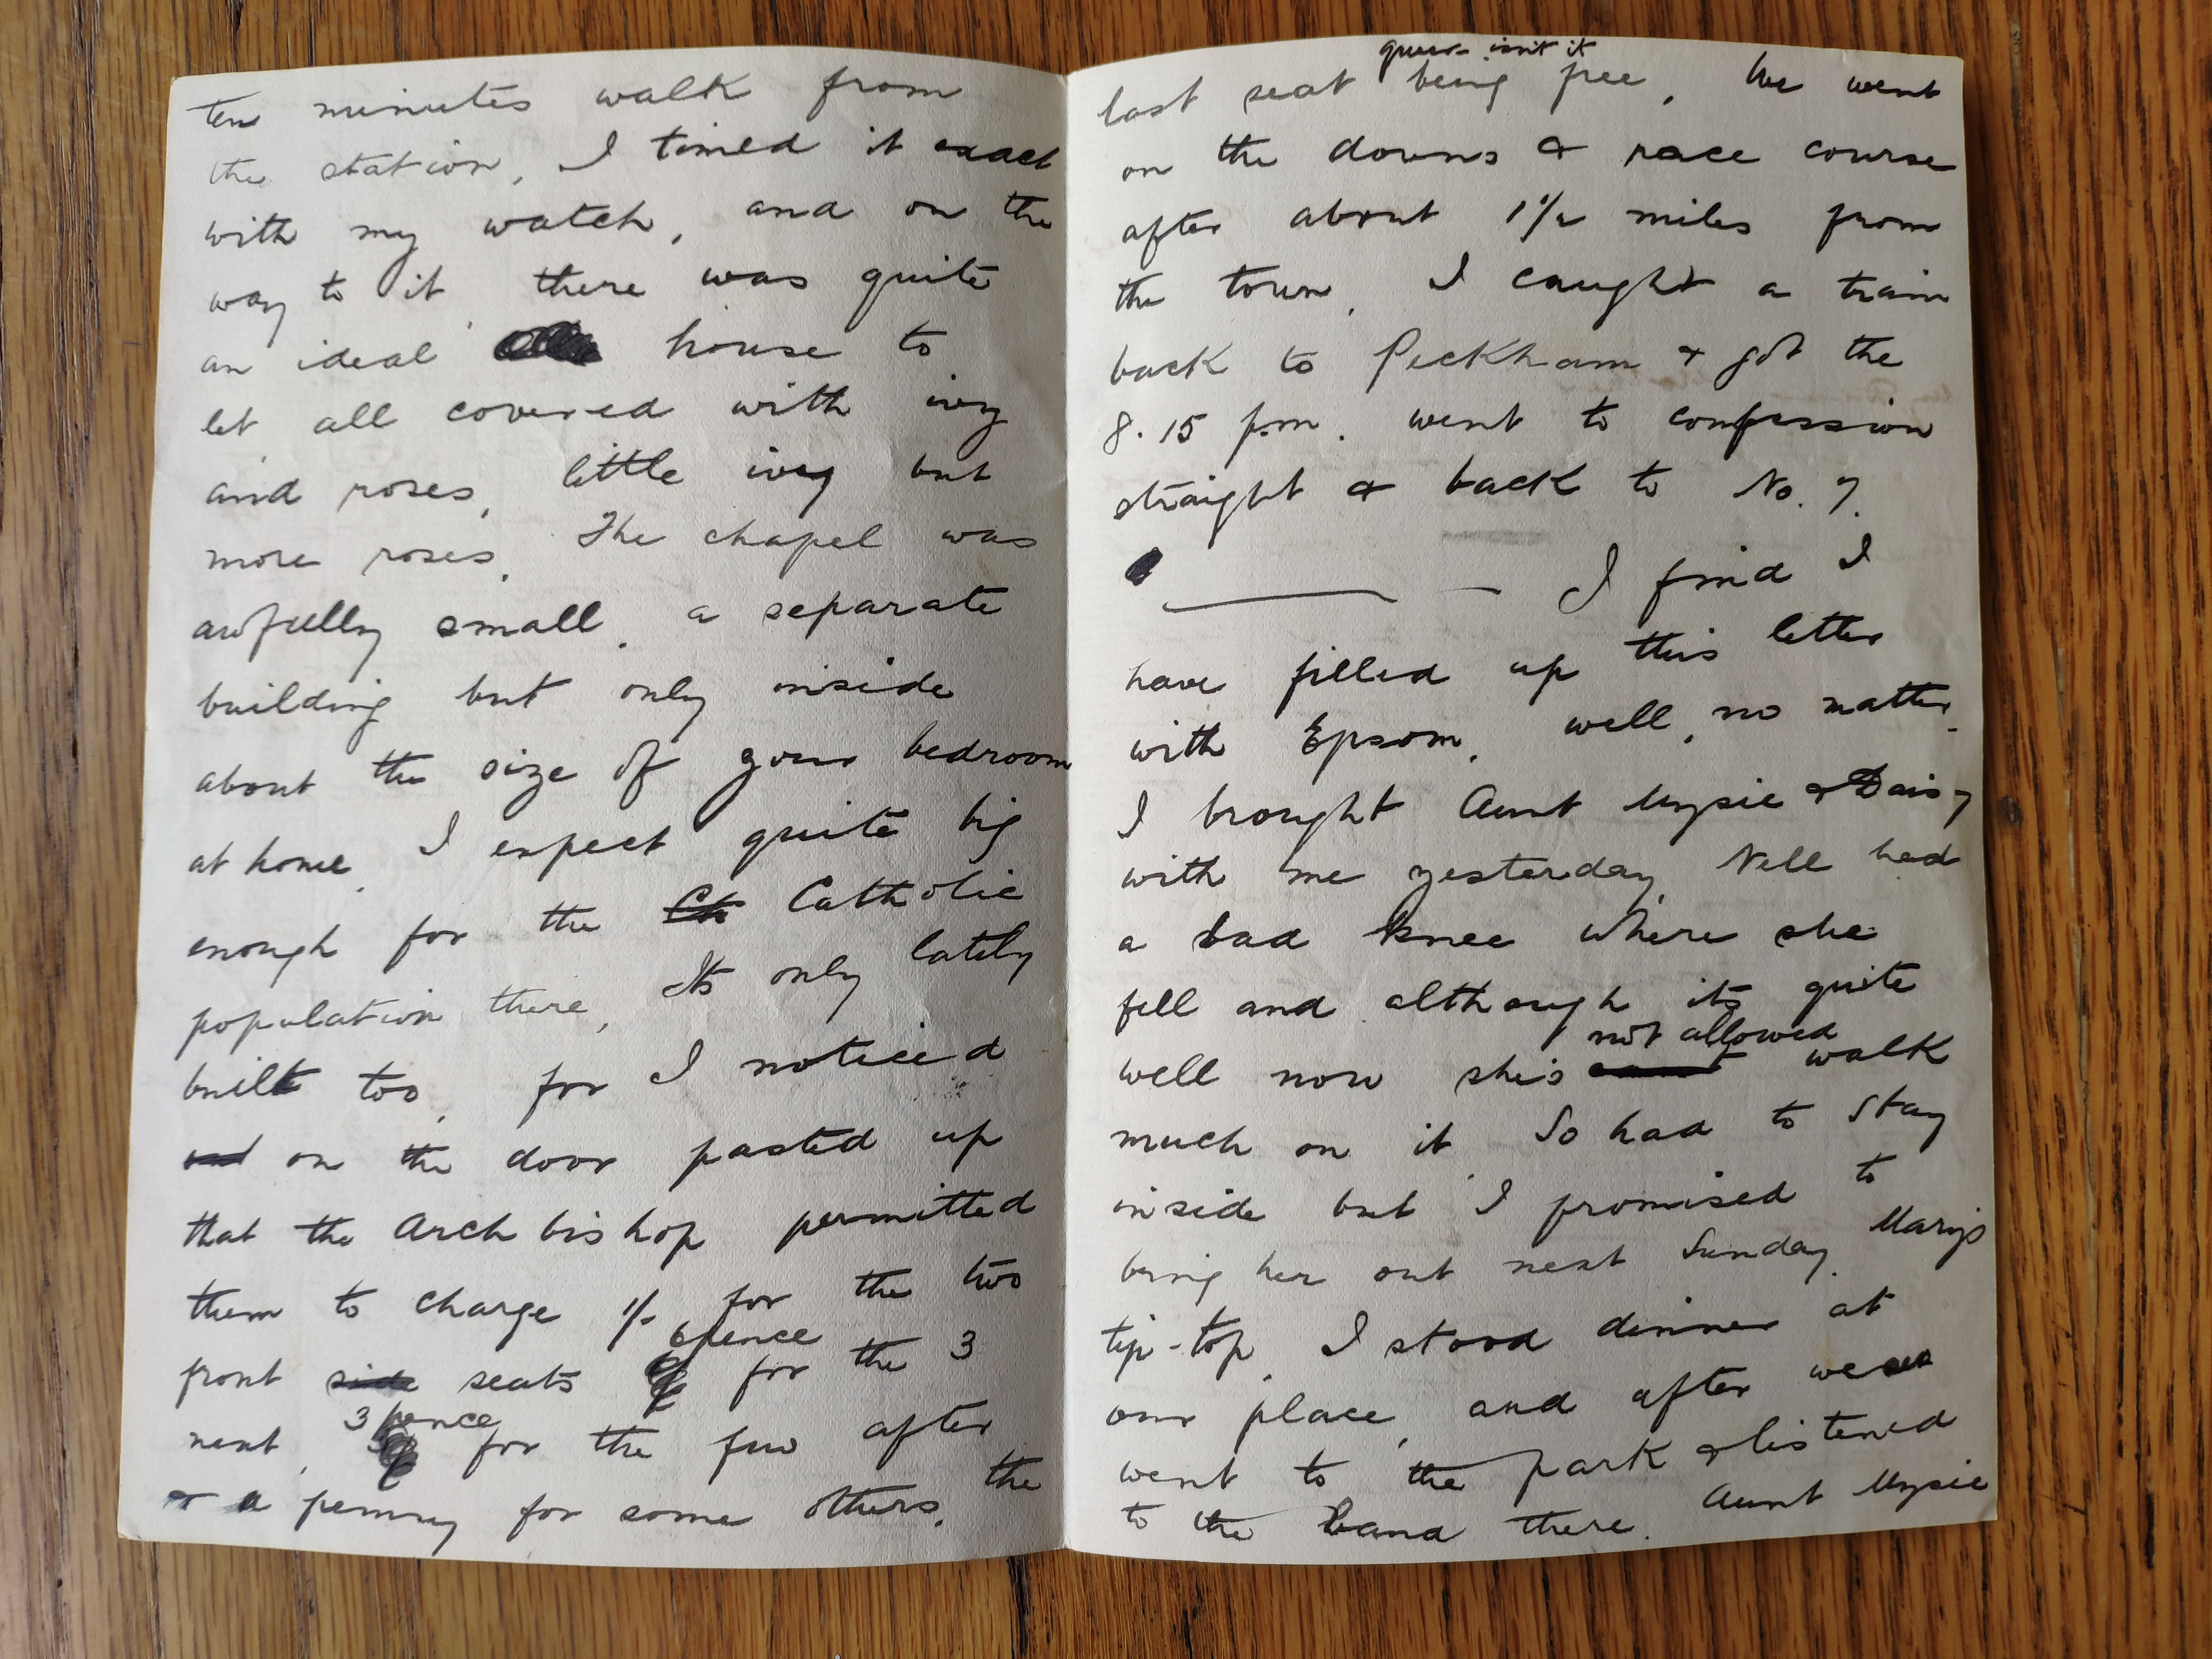 ten minutes walk from
the station, I timed it exact
with my watch, and on the
way to it there was quite
an ideal house to
let all covered with ivy
and roses, little ivy but
more roses. The chapel was
awfully small, a separate
building but only inside
about the size of your bedroom
at home. I expect quite big
enough for the Ch Catholic
population there, Its only lately
built too, for I noticed
on the door pasted up
that the Arch bishop permitted
them to charge 1/- for the two
6pence
front side seats for the 3
3 pence
next, for the few after
& a penny for some others, the
queer isn't it
last seat being free, We went
on the downs & race course
after about 1½ miles from
the town, I caught a train
back to Peckham & got the
8.15 p.m. went to confession
straight & back to No. 7.
I find I
have filled up this letter
with Epsom, well, no matter.
I brought Aunt Mysie & Daisy
with me yesterday, Nell had
a bad knee where she
fell and although its quite
not allowed
well now she's walk
much on it. So had to stay
inside but I promised to
bring her out next Sunday. Mary's
tip-top. I stood dinner at
our place, and after we
went to the park & listened
to the band there. Aunt Mysie